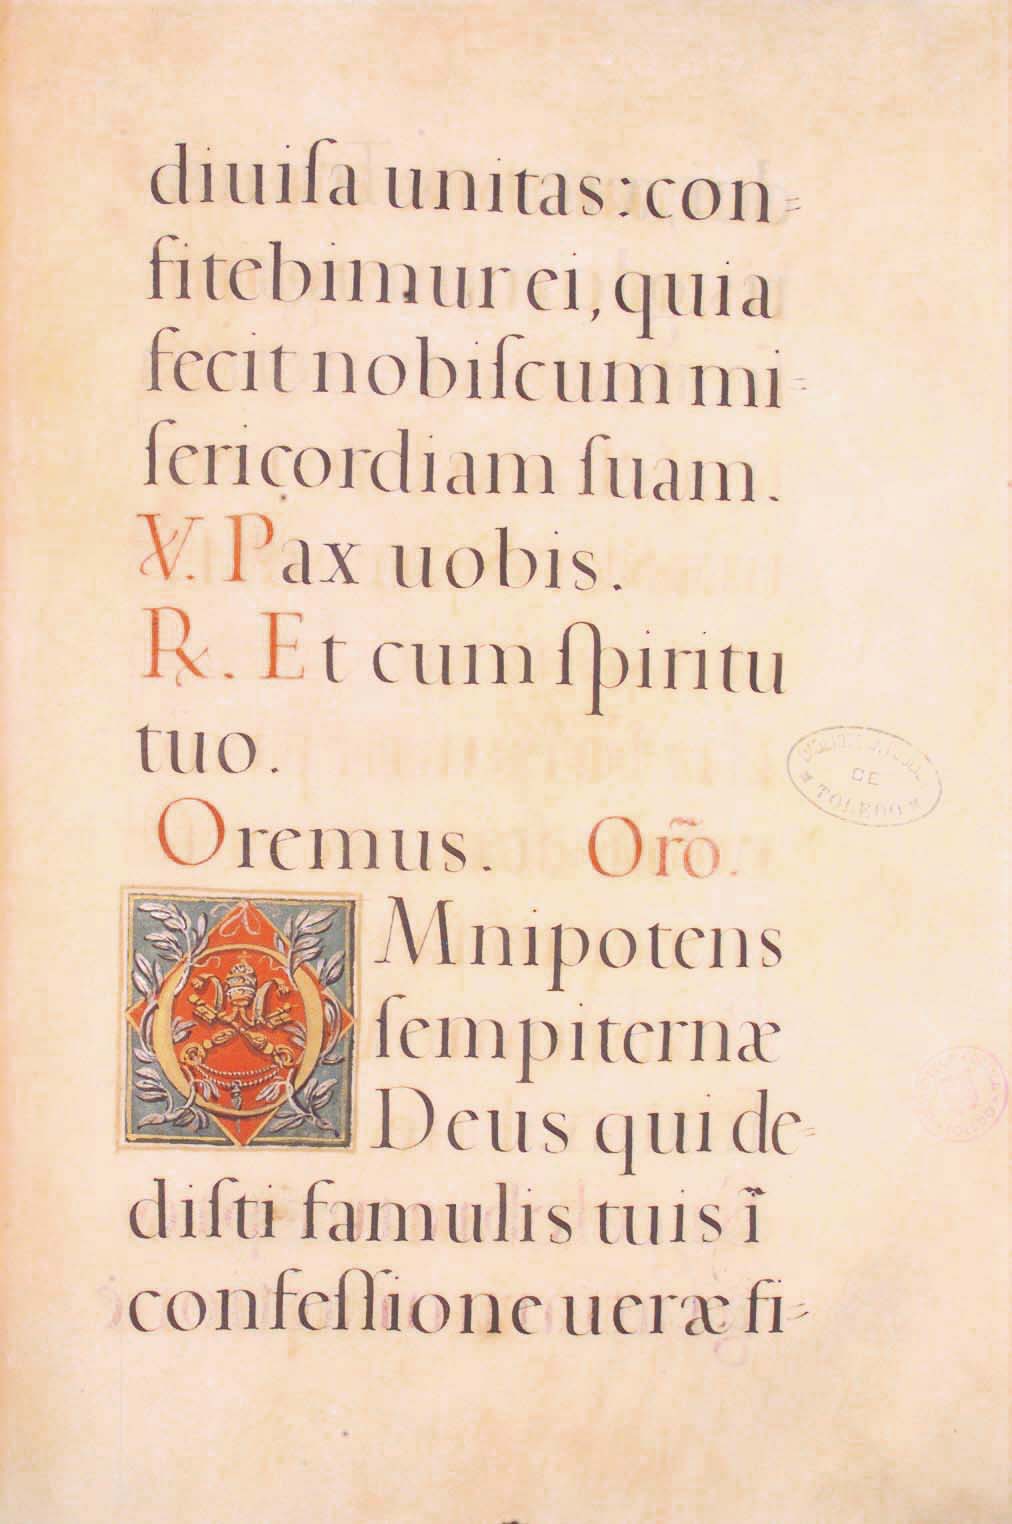 diuiſa unitas: con=
fitebimur ei, quia
fecit nobiſcum mi=
ſericordiam ſuam.
℣. Pax uobis.
℟. Et cum ſpiritu
tuo.
Oremus. Orõ.
OMnipotens
ſempiternæ
Deus qui de=
diſti famulis tuis ĩ
confeſſione ueræ fi=
DE
TOLEDO